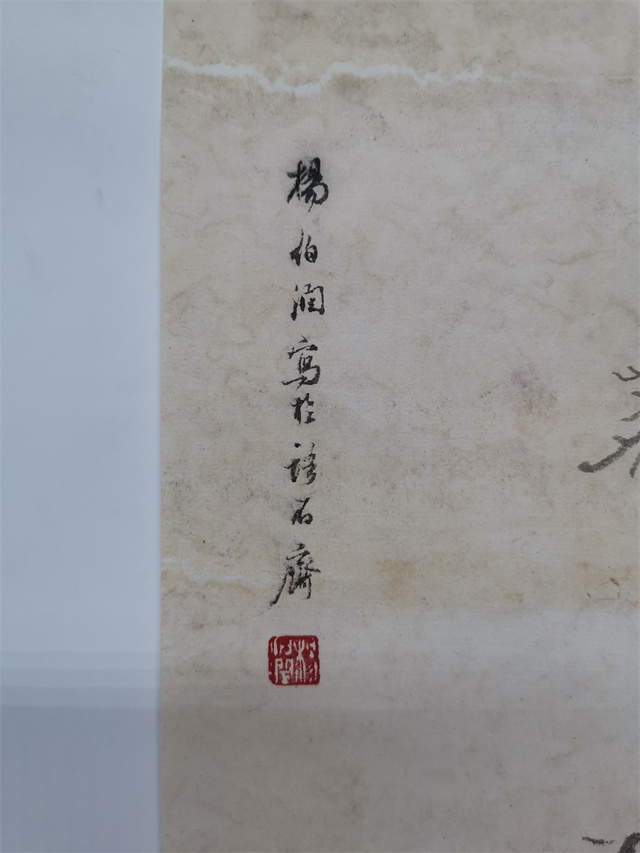 楊伯潤寫於語石齋